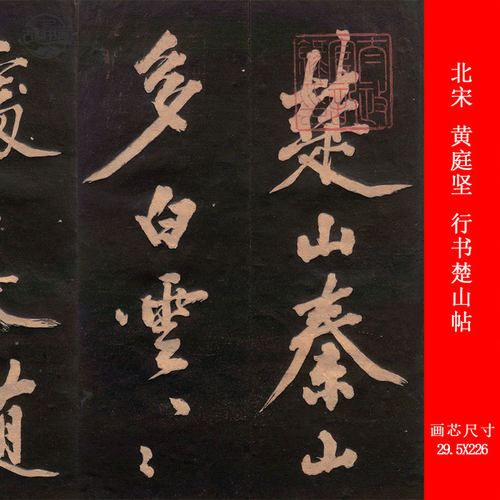 北宋 黄庭坚 行书楚山帖
画芯尺寸
29.5X226
楚山秦山
多白雲〻